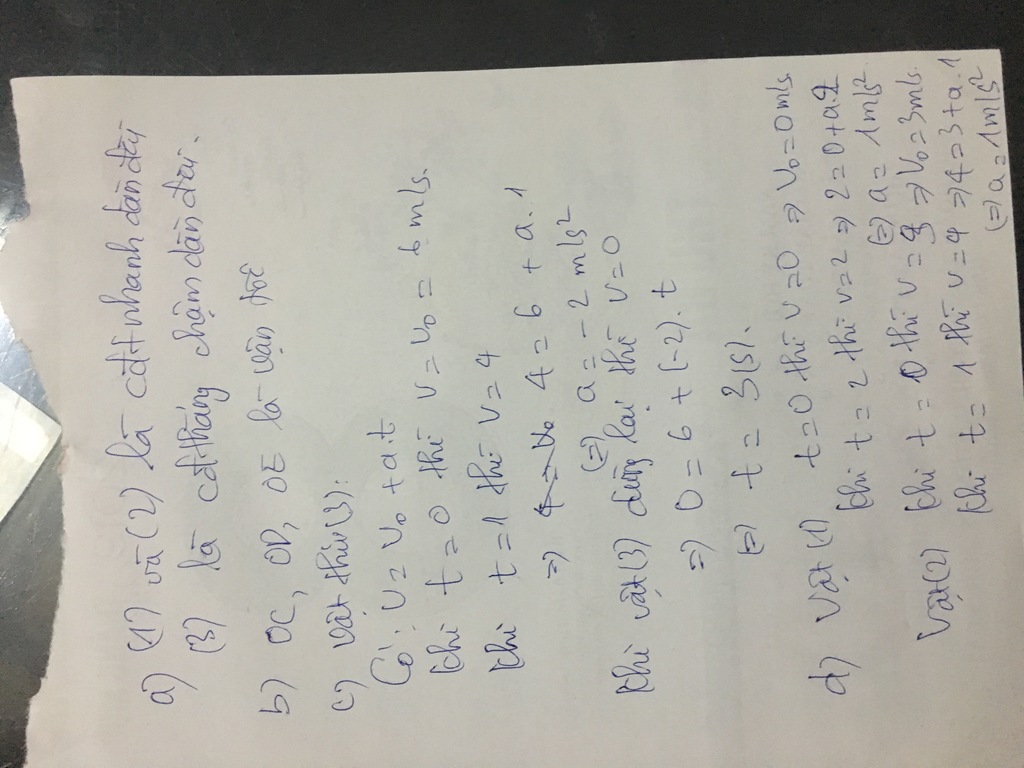 a) (1) và (2) là cđt nhanh dần đều
(3) là cđ thẳng chậm dần đều.
b) OC, OD, OE là vận tốc
c) Vật thứ (3):
Có: v = v₀ + a.t
Khi t = 0 thì v = v₀ = 6 m/s.
Khi t = 1 thì v = 4
=> 4 = 6 + a.1
(=) a = -2 m/s²
Khi vật (3) dừng lại thì v = 0
=> 0 = 6 + (-2).t
(=) t = 3(s).
d) Vật (1) t = 0 thì v = 0 => v₀ = 0 m/s.
Khi t = 2 thì v = 2 => 2 = 0 + a.2
(=) a = 1 m/s²
Vật (2) Khi t = 0 thì v = 3 => v₀ = 3 m/s.
Khi t = 1 thì v = 4 => 4 = 3 + a.1
(=) a = 1 m/s²